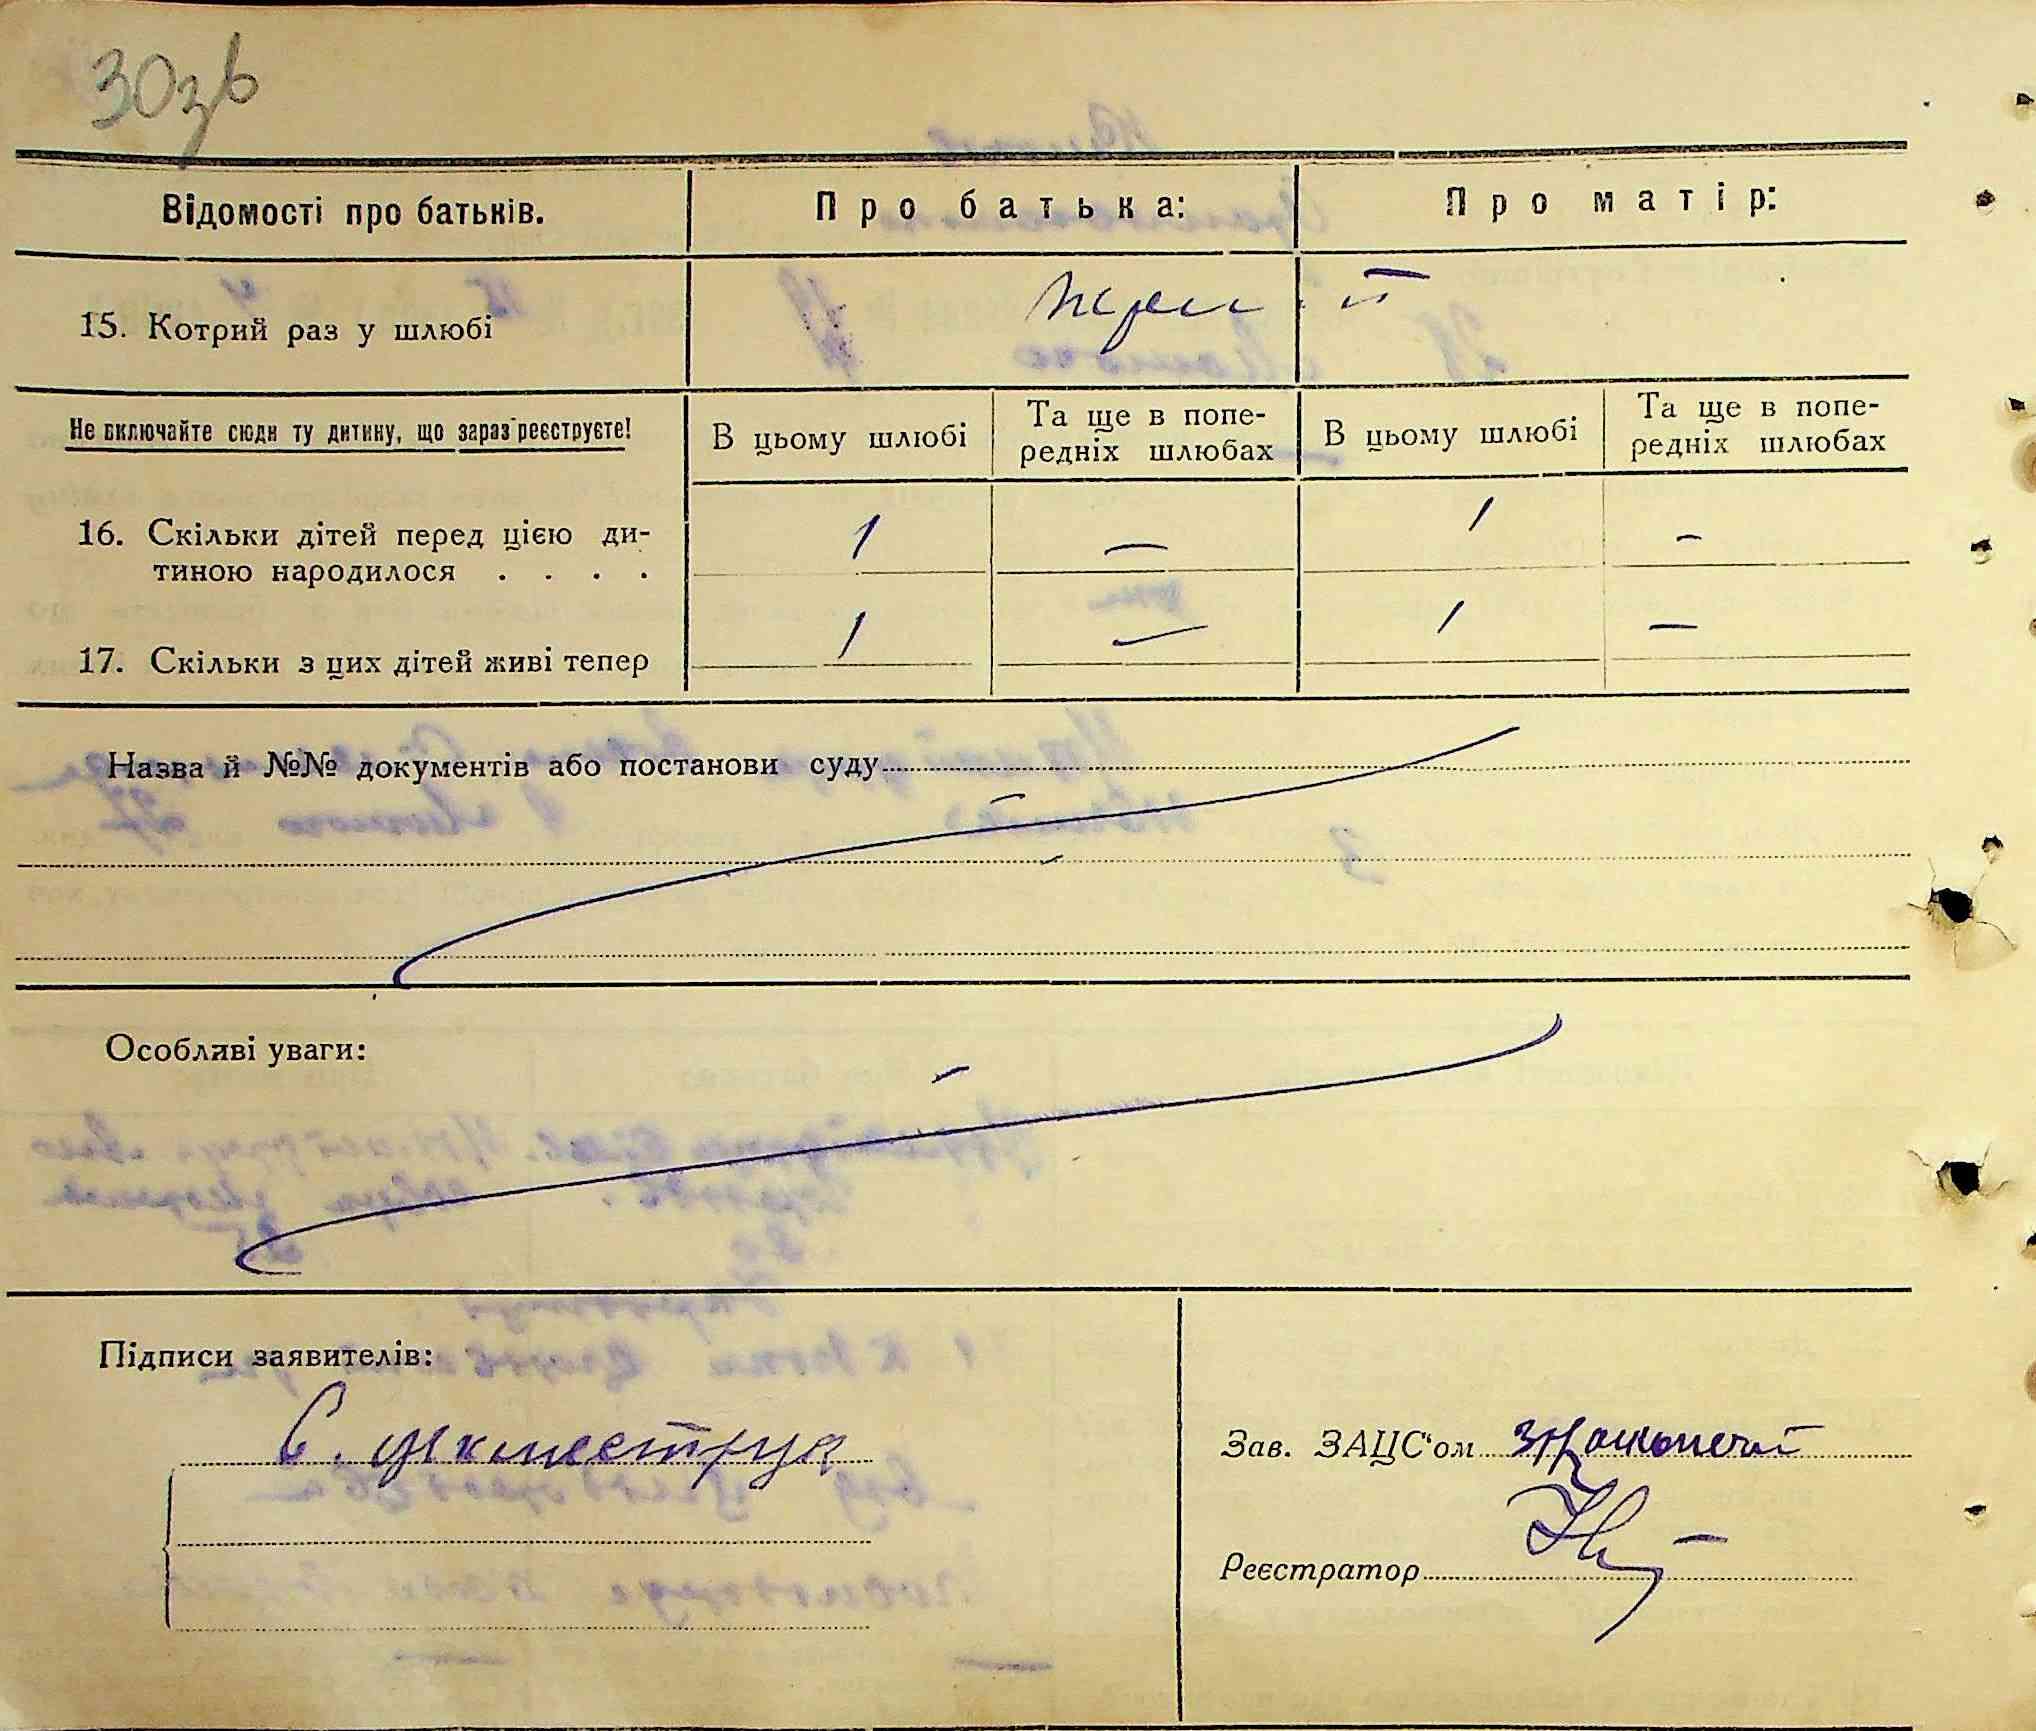 30зв
Відомості про батьків.
Про батька:
Про матір:
15. Котрий раз у шлюбі
перш
Не включайте сюди ту дитину, що зараз реєструєте!
В цьому шлюбі
Та ще в попе-
редніх шлюбах
В цьому шлюбі
Та ще в попе-
редніх шлюбах
16. Скільки дітей перед цією ди-
тиною народилося . . . .
1 — 1 —
17. Скільки з цих дітей живі тепер
1 — 1 —
Назва й №№ документів або постанови суду
Особливі уваги:
Підписи заявителів:
Зав. ЗАЦС'ом
Реєстратор